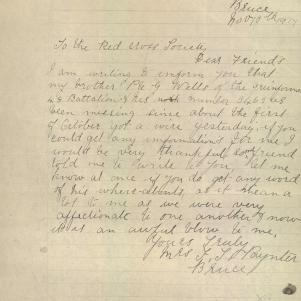 Bruce
Nov 10th 1917
To the Red Cross Society
Dear Friends
I am writing to inform you that
my brother Pte G Wells of the
Battalion his number
been missing since about the first
of October got a were yesterday, if you
could get any informations for me I
would be very thankful to friend
told me to write to you, let me
know at once if you do get any word
of his whereabouts as it mean a
lot to me as we were very
affectionate to one another & now
it is an awful blow to me,
Yours Truly
Mrs Paynter
Bruce